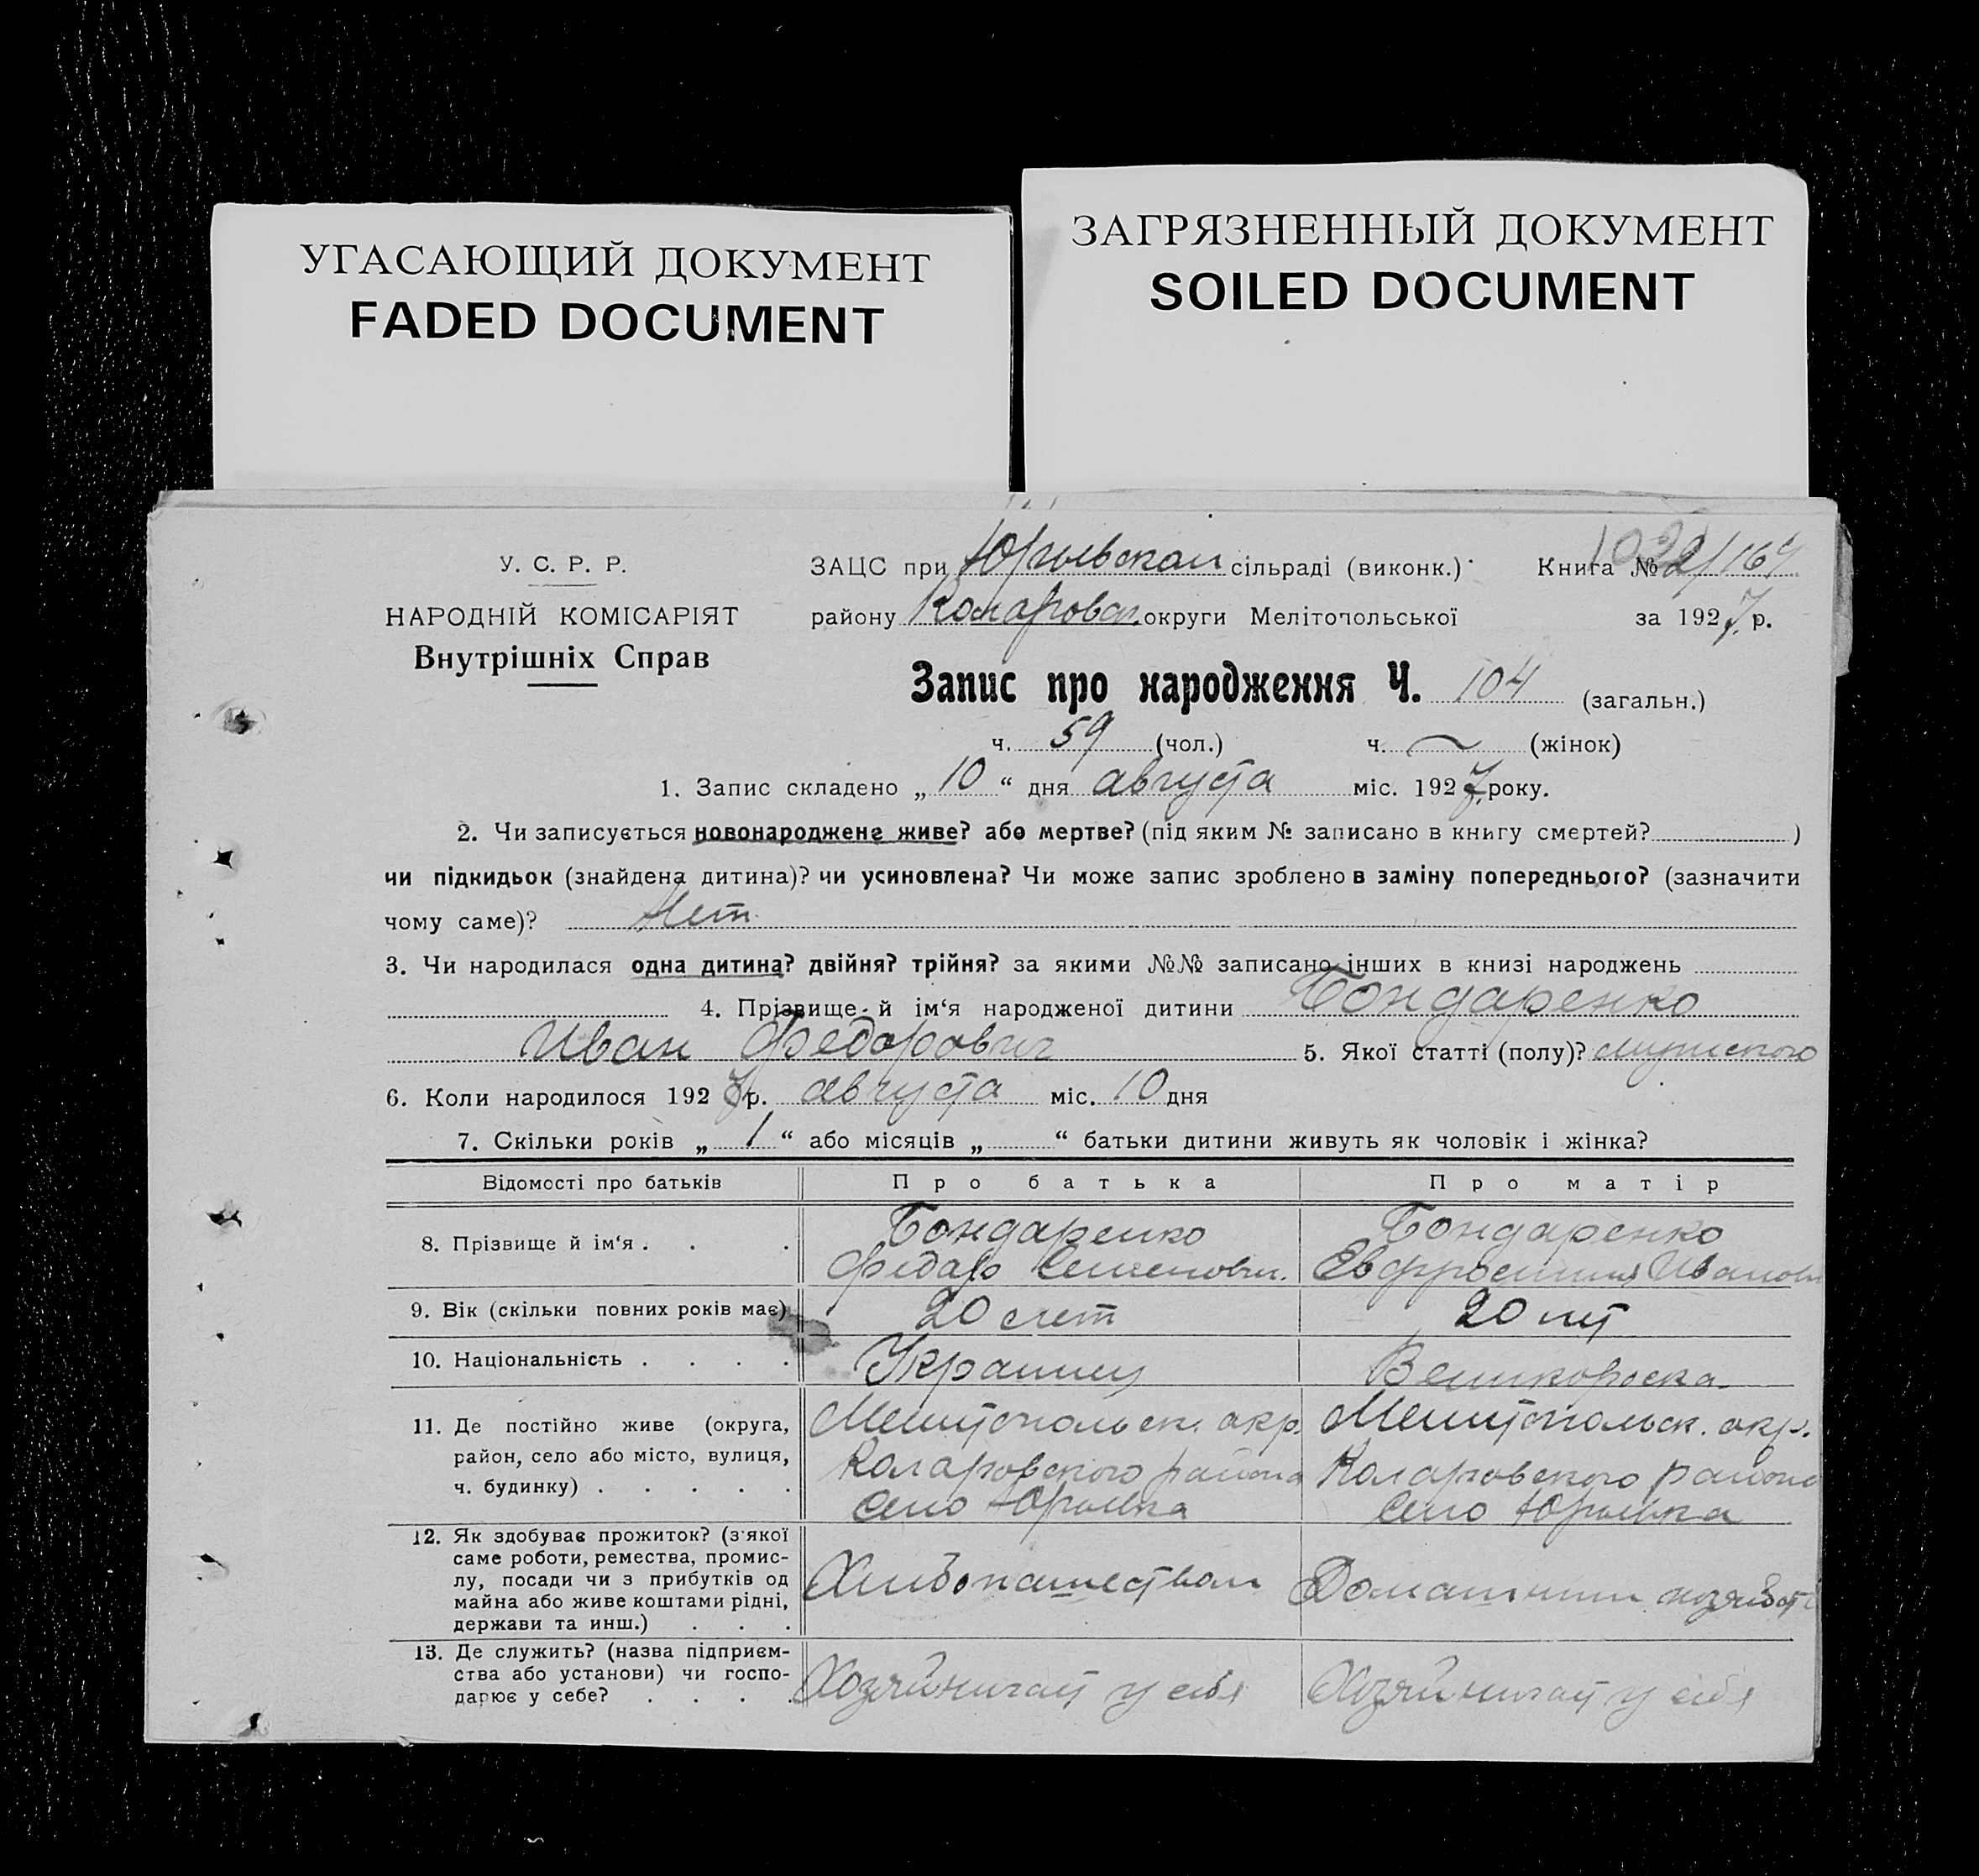 УГАСАЮЩИЙ ДОКУМЕНТ
FADED DOCUMENT
ЗАГРЯЗНЕННЫЙ ДОКУМЕНТ
SOILED DOCUMENT
У. С. Р. Р.
НАРОДНІЙ КОМІСАРІЯТ
Внутрішніх Справ
ЗАЦС при Юрьевском сільраді (виконк.) Книга №
району Коларовск. округи Мелітопольської за 1927 р.
Запис про народження Ч. 104 (загальн.)
ч. 59 (чол.) ч. — (жінок)
1. Запис складено „ 10 “ дня августа міс. 1927 року.
2. Чи записується новонароджене живе? або мертве? (під яким № записано в книгу смертей? )
чи підкидьок (знайдена дитина)? чи усиновлена? Чи може запис зроблено в заміну попереднього? (зазначити
чому саме)? Нет
3. Чи народилася одна дитина? двійня? трійня? за якими №№ записано інших в книзі народжень
4. Прізвище й ім‘я народженої дитини Бондаренко
Иван Федорович 5. Якої статті (полу)? мужского
6. Коли народилося 1927 р. августа міс. 10 дня
7. Скільки років „ 1 “ або місяців „ “ батьки дитини живуть як чоловік і жінка?
Відомості про батьків Про батька Про матір
8. Прізвище й ім‘я . . . Бондаренко Бондаренко
Федор Семенович. Евфросиния Иванов
9. Вік (скільки повних років має) 20 лет 20 лет
10. Національність . . . . Украинец Великороска
11. Де постійно живе (округа, Мелитопольск. окр. Мелитопольск. окр.
район, село або місто, вулиця, Коларовского района Коларовского района
ч. будинку) . . . . . Село Юрьевка Село Юрьевка
12. Як здобуває прожиток? (з якої
саме роботи, ремества, промис-
лу, посади чи з прибутків од Хлебопашеством Домашним хозяйст
майна або живе коштами рідні,
держави та инш.) . . .
13. Де служить? (назва підприєм-
ства або установи) чи госпо- Хозяйничает у себя Хозяйничает у себя
дарює у себе? . . . .